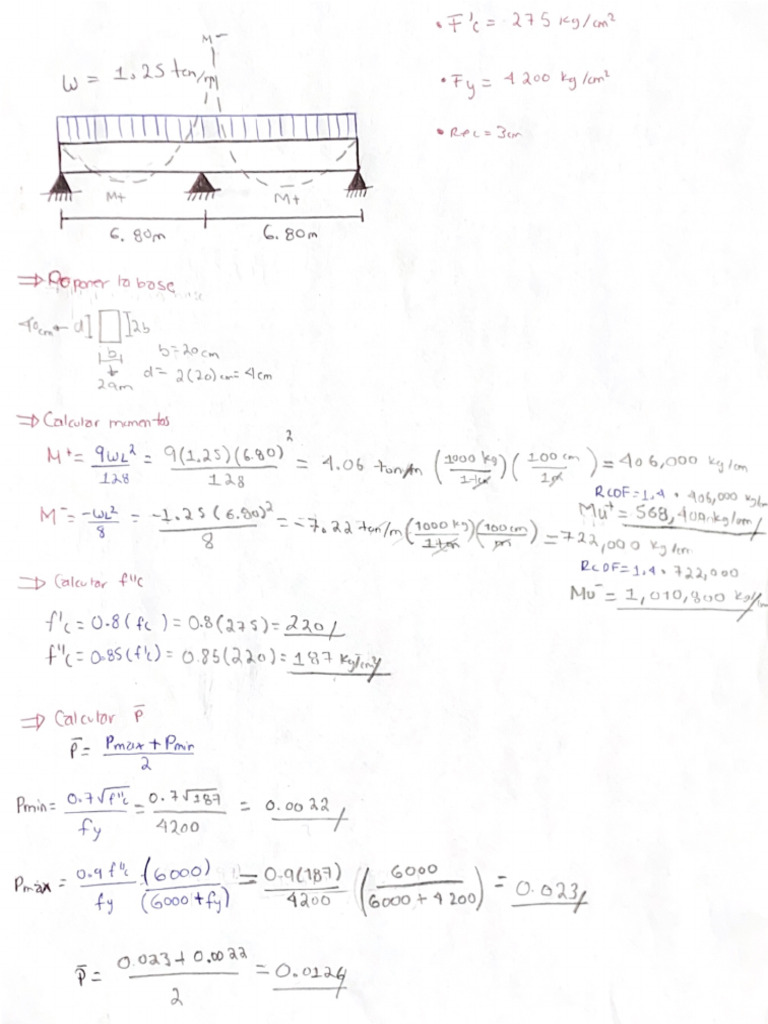 M⁻
W = 1.25 ton/m
• F'c = 275 Kg/cm²
• Fy = 4200 Kg/cm²
• Rec = 3cm
M+ M+
6.80m 6.80m
⇒ Proponer la base
40cm ← d 2b
b
20cm
b=20cm
d= 2(20)cm=4cm
⇒ Calcular momentos
M⁺ = 9WL²/128 = 9(1.25)(6.80)²/128 = 4.06 ton/m (1000 kg/1 ton)(100 cm/1m) = 406,000 kg/cm
RCDF=1.4 • 406,000 kg/cm
Mu⁺ = 568,400 kg/cm
M⁻ = -WL²/8 = -1.25(6.80)²/8 = -7.22 ton/m (1000 kg/1 ton)(100cm/m) = 722,000 kg/cm
RCDF=1.4 • 722,000
Mu⁻ = 1,010,800 kg/cm
⇒ Calcular f''c
f'c = 0.8(fc) = 0.8(275) = 220/
f''c = 0.85(f'c) = 0.85(220) = 187 kg/cm²/
⇒ Calcular P̄
P̄ = Pmax + Pmin/2
Pmin = 0.7√f''c/fy = 0.7√187/4200 = 0.0022/
Pmáx = 0.9f''c/fy (6000)/(6000+fy) = 0.9(187)/4200 (6000/6000+4200) = 0.023/
P̄ = 0.023+0.0022/2 = 0.0126/